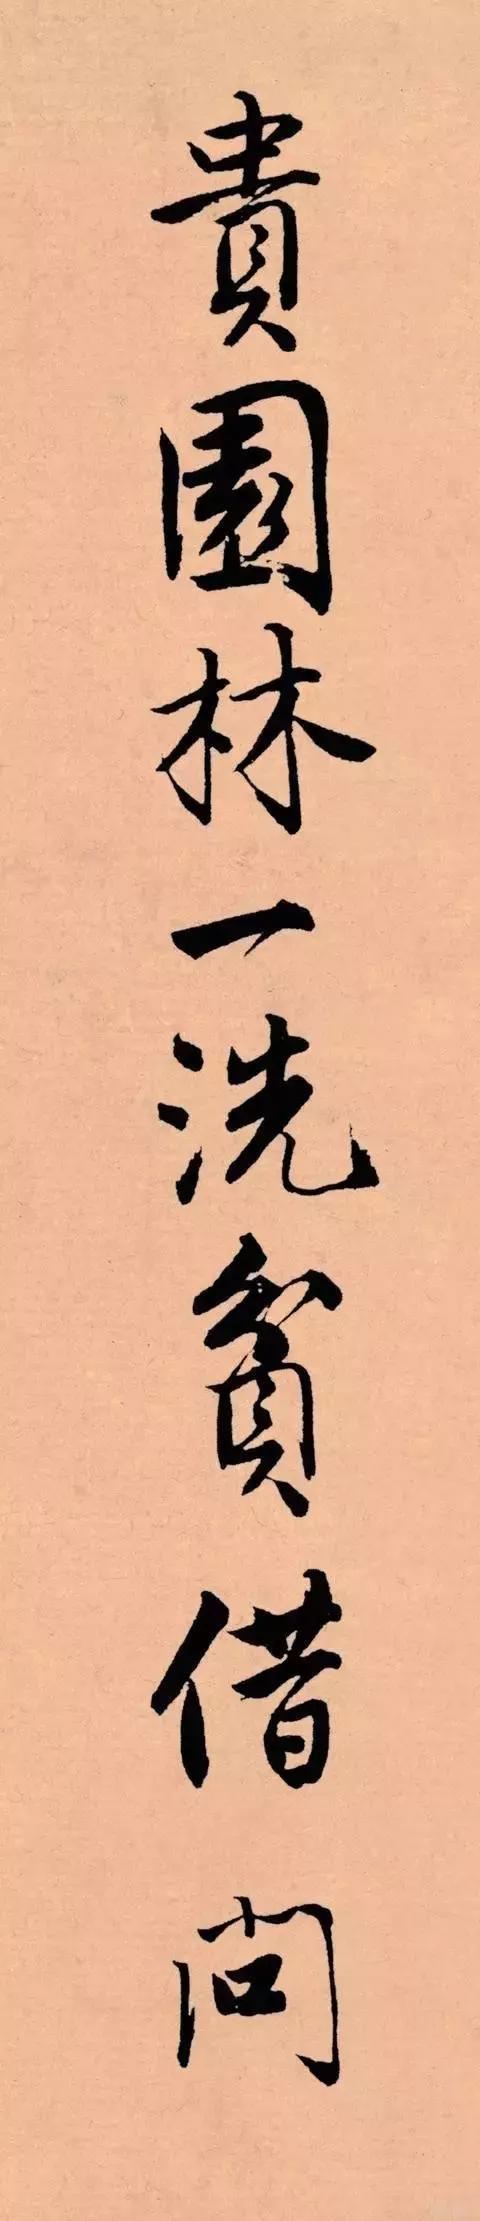 貴園林一洗貧借問